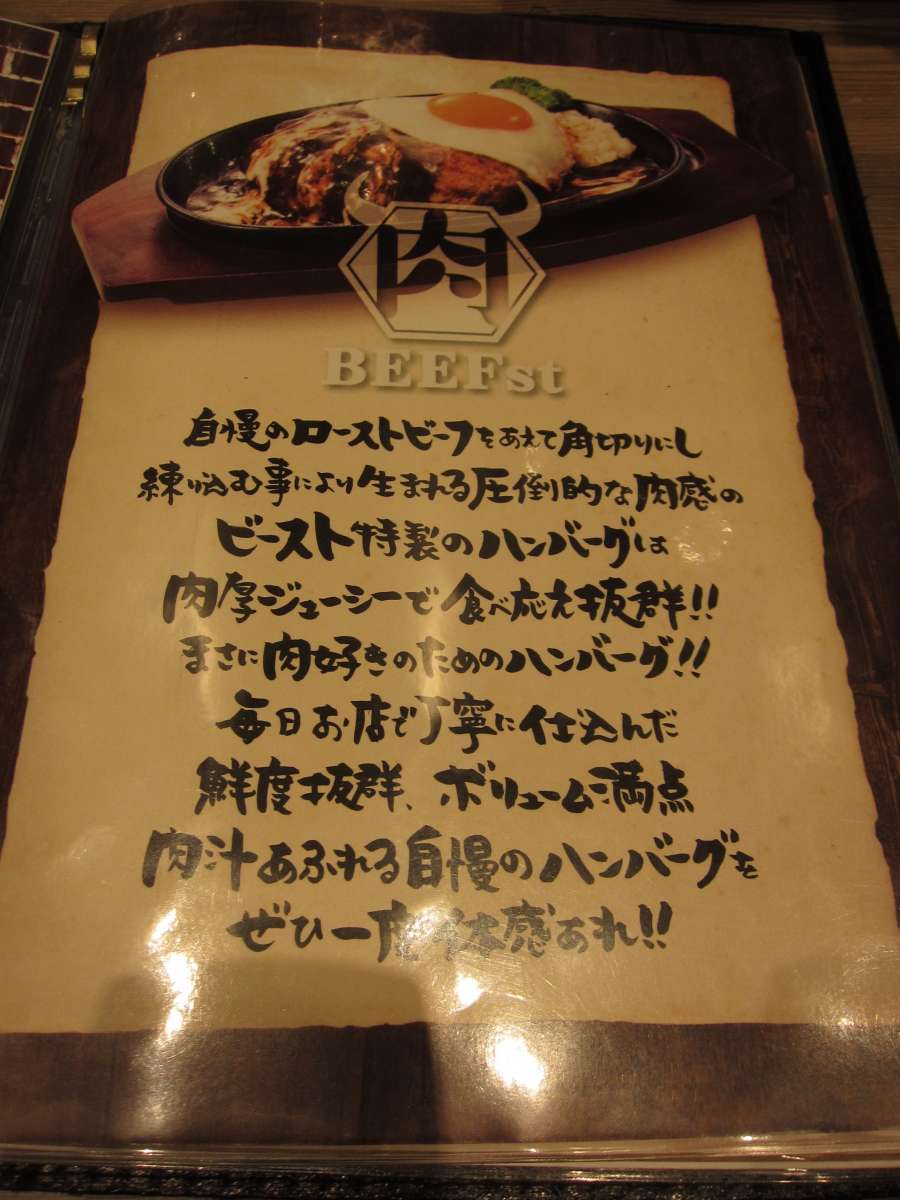 肉
BEEFst
自慢のローストビーフをあえて角切りにし
練り込む事により生まれる圧倒的な肉感の
ビースト特製のハンバーグは
肉厚ジューシーで食べ応え抜群!!
まさに肉好きのためのハンバーグ!!
毎日お店で丁寧に仕込んだ
鮮度抜群、ボリューム満点
肉汁あふれる自慢のハンバーグを
ぜひ一度体感あれ!!